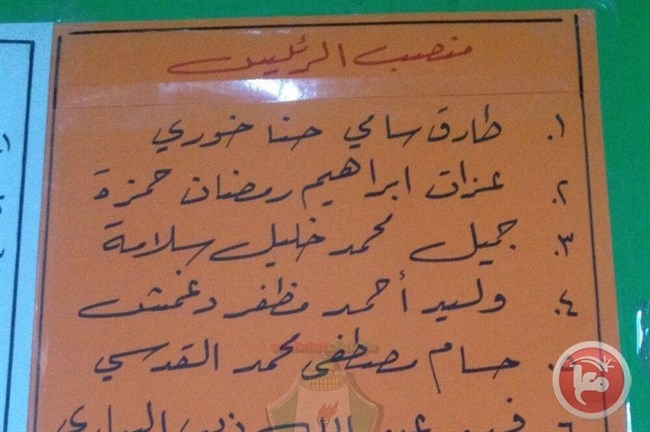 منصب الرئيس
١. طارق سامي حنا خوري
٢. عزات ابراهيم رمضان حمزة
٣. جميل محمد خليل سلامة
٤. وليد أحمد مظفر دغمش
٥. حسام مصطفى محمد القدسي
٦. فهد عبد الله ذيب البياري
معا